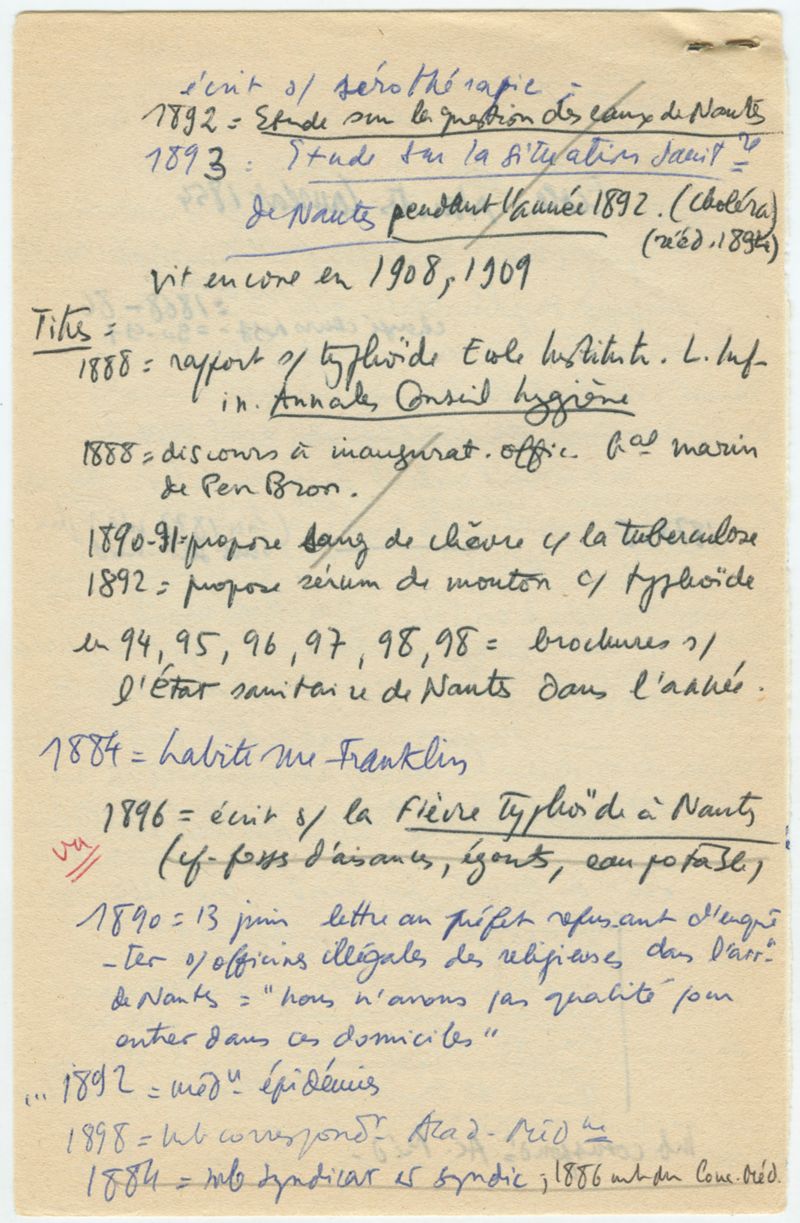 écrit s/ sérothérapie =
1892 = Etude sur la question des eaux de Nantes
1893 : Etude sur la situation sanit.re
de Nantes pendant l'année 1892. (choléra)
(rééd. 1894)
vit encore en 1908, 1909
Titres =
1888 = rapport s/ typhoïde Ecole Institutr. L. Inf
in. Annales Conseil hygiène
1888 = discours à inaugurat. offic. hal marin
de Pen Bron.
1890-91 = propose sang de chèvre c/ la tuberculose
1892 = propose sérum de mouton c/ typhoïde
en 94, 95, 96, 97, 98, 98 = brochures s/
l'État sanitaire de Nantes dans l'année.
1884 = habite rue Franklin
1896 = écrit s/ la Fièvre typhoïde à Nantes
vu
(cf. fosses d'aisances, égouts, eau potable)
1890 = 13 juin lettre au préfet refusant d'enquê
-ter s/ officines illégales des religieuses dans l'arrt
de Nantes = "nous n'avons pas qualité pour
entrer dans ces domiciles"
... 1892 = médn épidémies
1898 = mb correspondt Acad. Médne
1884 = mb syndicat et syndic ; 1886 mb du Conc. Méd.